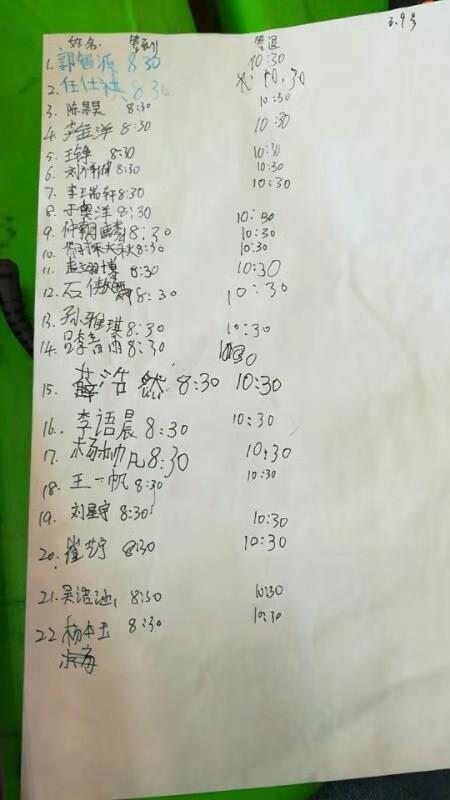 3.9号
姓名 签到 签退
1. 郭 源 8:30 10:30
2. 任仕祺 8:30 10:30
3. 陈昊昊 8:30 10:30
4. 李金洋 8:30 10:30
5. 王铮 8:30 10:30
6. 刘 8:30 10:30
7. 李王尚轩 8:30 10:30
8. 于奥洋 8:30 10:30
9. 8:30 10:30
10. 8:30 10:30
11. 博 8:30 10:30
12. 石 8:30 10:30
13. 孙雅琪 8:30 10:30
14. 吕李言雨 8:30 10:30
15. 浩然 8:30 10:30
16. 李语晨 8:30 10:30
17. 杨帅凡 8:30 10:30
18. 王一帆 8:30 10:30
19. 刘星宇 8:30 10:30
20. 崔艺宁 8:30 10:30
21. 吴语 8:30 10:30
22 杨本玉 8:30 10:30